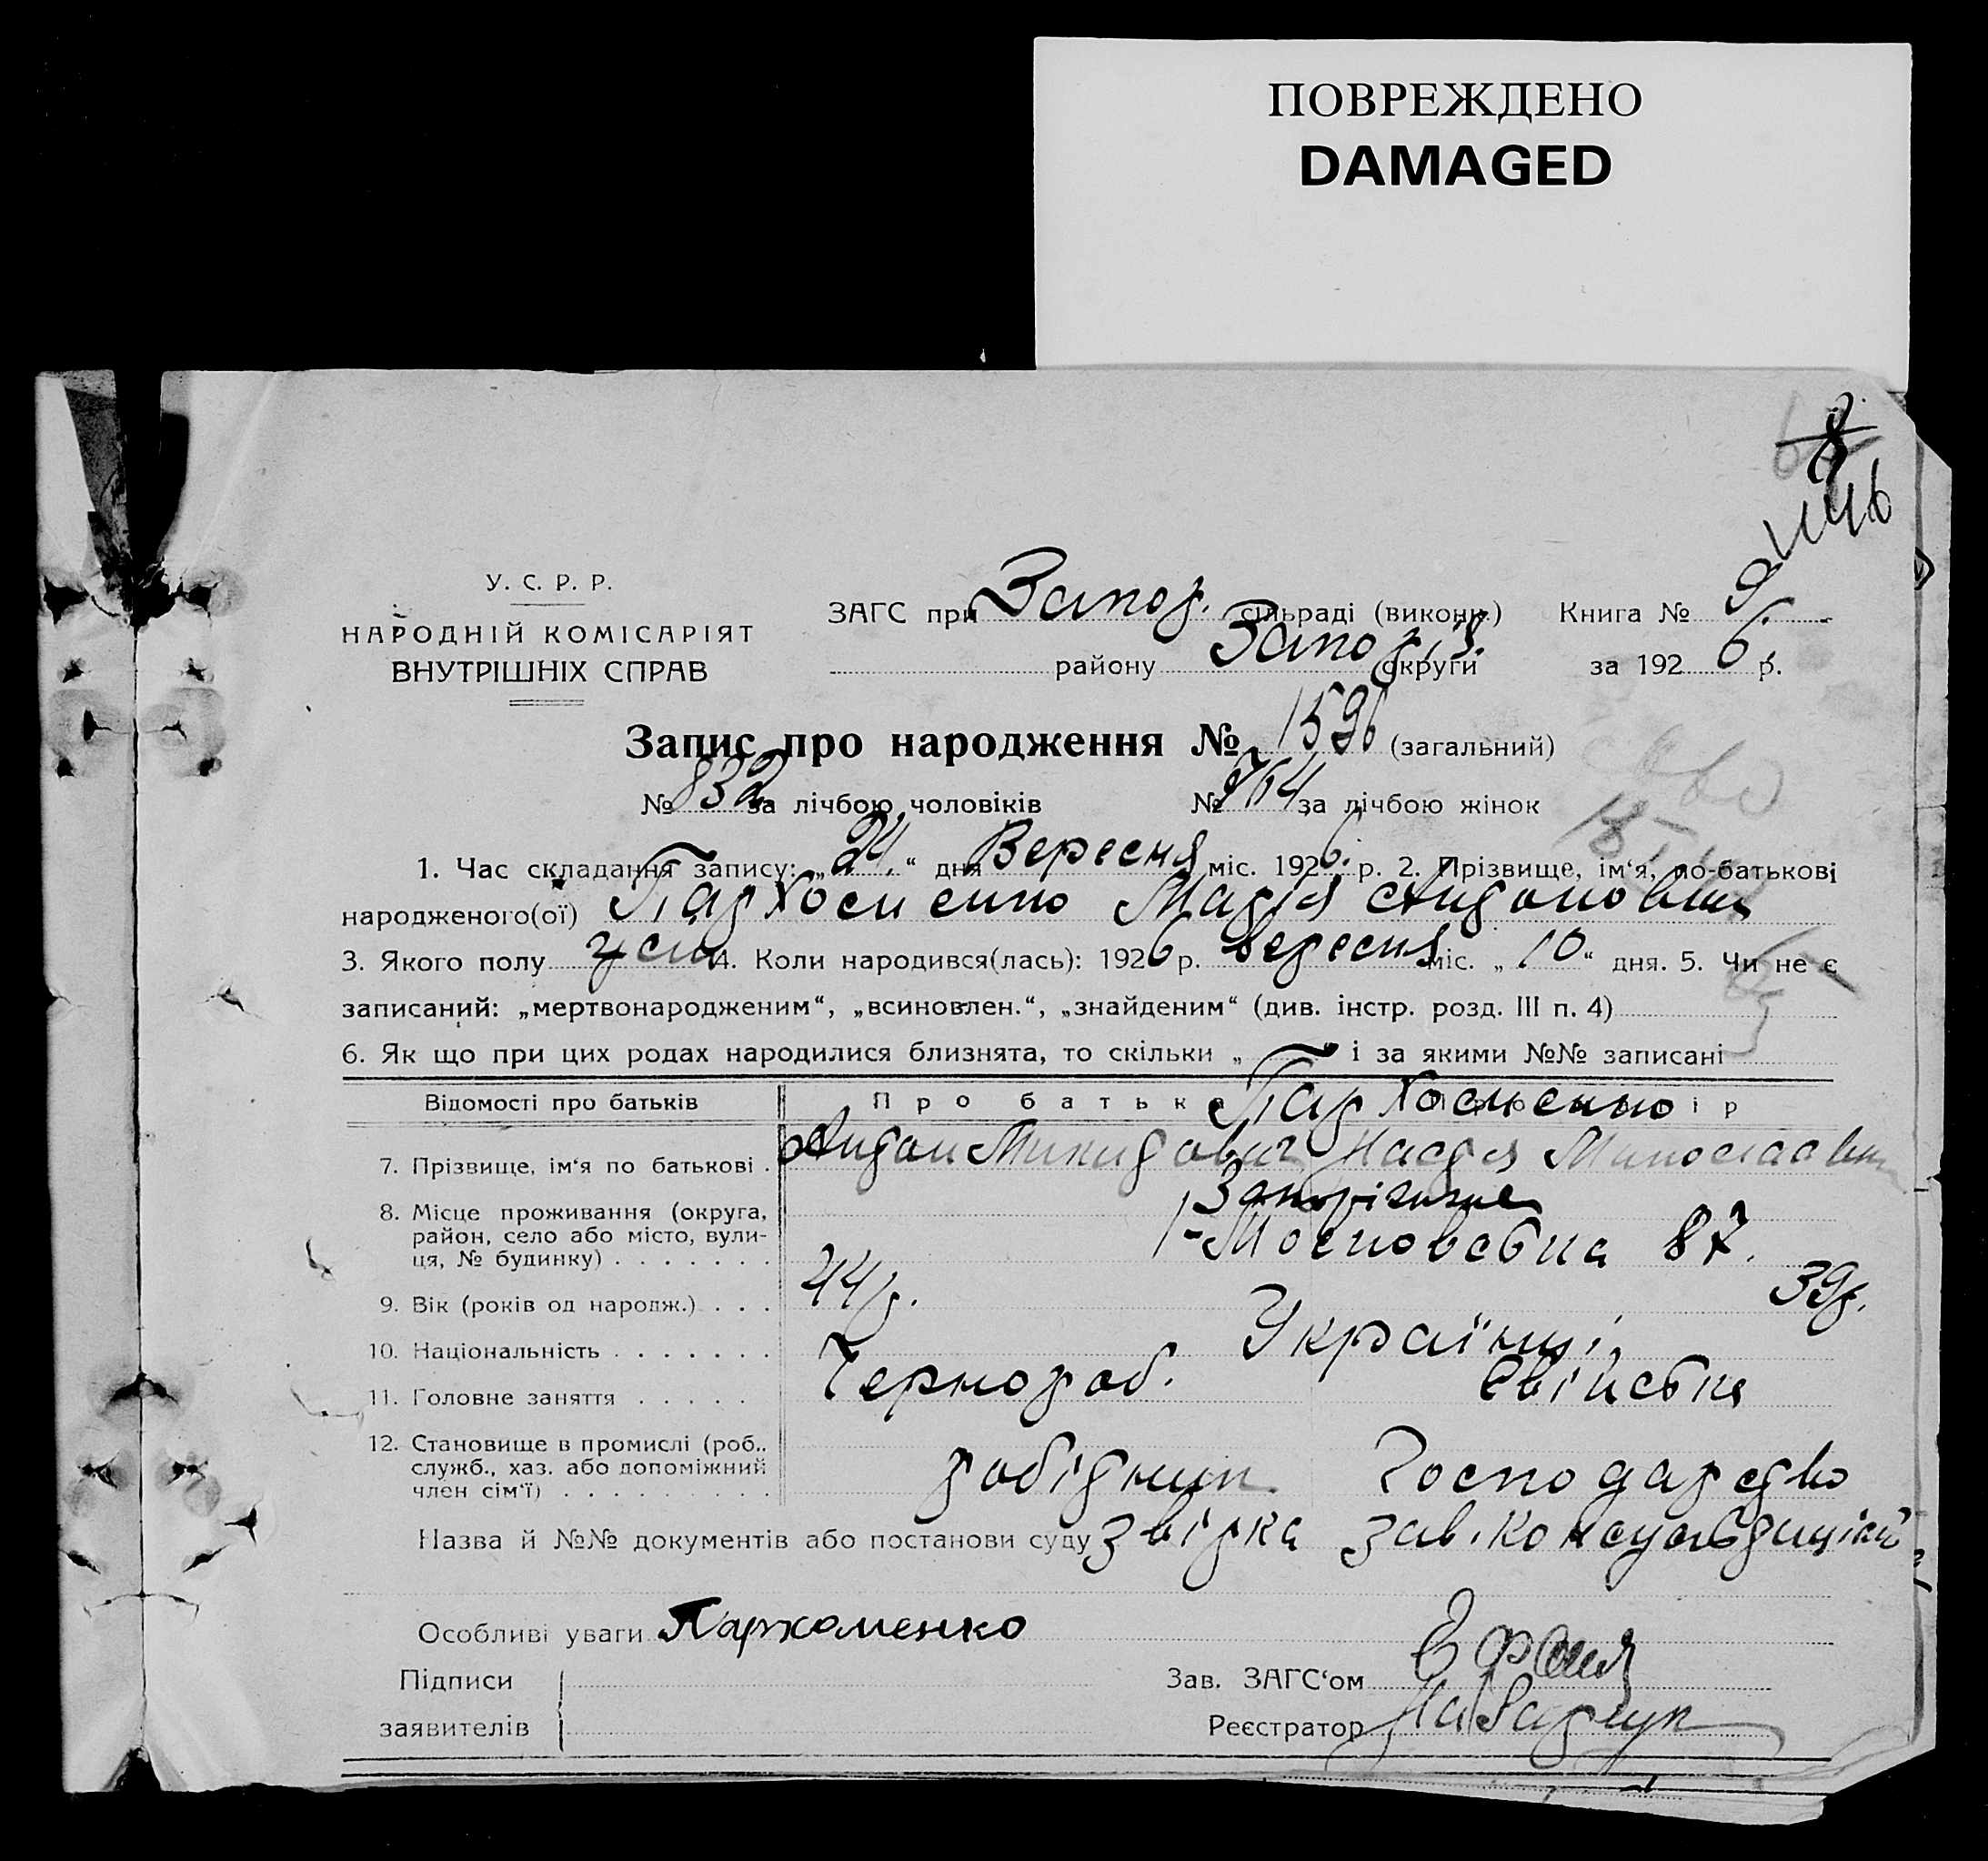 ПОВРЕЖДЕНО
DAMAGED
8
У. С. Р. Р.
НАРОДНІЙ КОМІСАРІЯТ
ВНУТРІШНІХ СПРАВ
ЗАГС при Запор. сільраді (викони.) Книга № 9
району Запоріз. округи за 1926 р.
Запис про народження № 1596 (загальний)
№ 832 за лічбою чоловіків № 764 за лічбою жінок
1. Час складання запису: „24“ дня Вересня міс. 1926 р. 2. Прізвище, ім‘я, по-батькові
народженого(ої) Пархоменко Марія
3. Якого полу жін 4. Коли народився(лась): 1926 р. Вересня міс. „10“ дня. 5. Чи не є
записаний: „мертвонародженим“, „всиновлен.“, „знайденим“ (див. інстр. розд. III п. 4)
6. Як що при цих родах народилися близнята, то скільки „ “ і за якими №№ записані
Відомості про батьків Про батька Пархоменко
7. Прізвище, ім‘я по батькові .
8. Місце проживання (округа, Запоріжже
район, село або місто, вули- І-Московська 87.
ця, № будинку) . . . . . . .
9. Вік (років од народж.) . . . 44 р. 39 р.
10. Національність . . . . . . . Українці
11. Головне заняття . . . . . Чернороб. Свійська
12. Становище в промислі (роб..
служб., хаз. або допоміжний робітник Господарство
член сім‘ї) . . . . . . . . .
Назва й №№ документів або постанови суду звірка зав. консультації
Особливі уваги Пархоменко
Підписи
заявителів
Зав. ЗАГС‘ом
Реєстратор